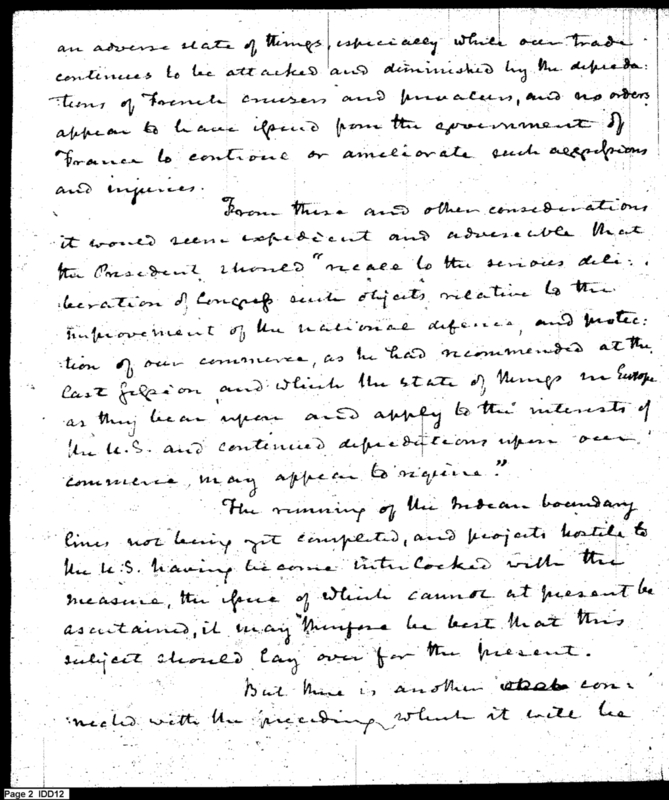 an adverse state of things, especially while our trade
continues to be attacked and diminished by the depreda:
tions of French cruizers and privateers, and no orders
appear to have issued from the government of
France to controul or ameliorate such aggressions
and injuries.
From these and other considerations
it would seem expedient and adviseable that
the President should "recall to the serious deli:
beration of Congress such objects relative to the
improvement of the national defence, and protec:
tion of our commerce, as he had recommended at the
last session, and which the state of things in Europe
as they bear upon and apply to the interests of
the U.S. and continued depredations upon our
commerce, may appear to require."
The running of the Indian boundary
lines not being yet completed, and projects hostile to
the U.S. having become interlocked with the
measure, the issue of which cannot at present be
ascertained, it may therefore be best that this
subject should lay over for the present.
But there is another con:
nected with the preceding, which it will be
Page 2 IDD12